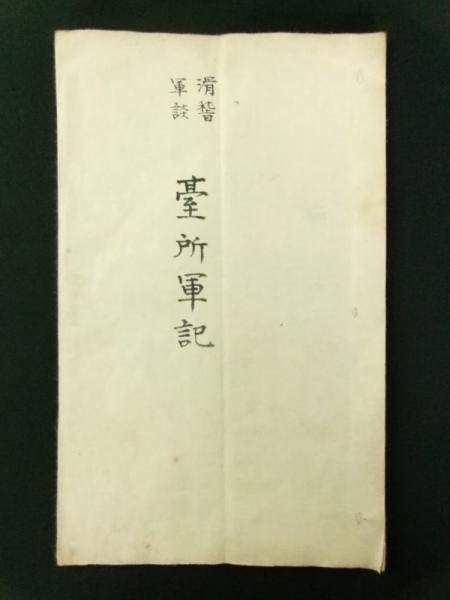 滑稽
軍談
臺所軍記